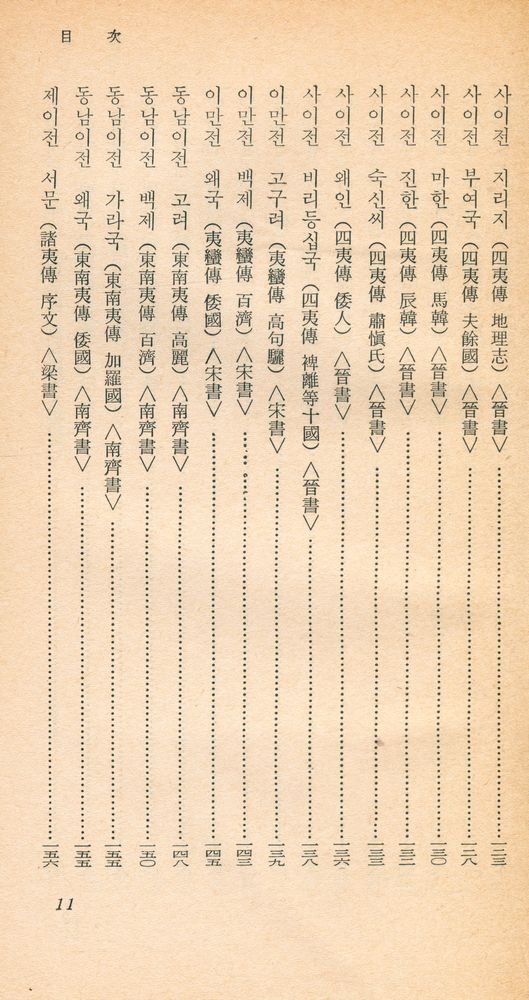 目 次
사이전 지리지 (四夷傳 地理志) <晉書> 一二三
사이전 부여국 (四夷傳 夫餘國) <晉書> 一二八
사이전 마한 (四夷傳 馬韓) <晉書> 一三〇
사이전 진한 (四夷傳 辰韓) <晉書> 一三二
사이전 숙신씨 (四夷傳 肅愼氏) <晉書> 一三三
사이전 왜인 (四夷傳 倭人) <晉書> 一三六
사이전 비리등십국 (四夷傳 裨離等十國) <晉書> 一三八
이만전 고구려 (夷蠻傳 高句驪) <宋書> 一三九
이만전 백제 (夷蠻傳 百濟) <宋書> 一四三
이만전 왜국 (夷蠻傳 倭國) <宋書> 一四五
동남이전 고려 (東南夷傳 高麗) <南齊書> 一四八
동남이전 백제 (東南夷傳 百濟) <南齊書> 一五〇
동남이전 가라국 (東南夷傳 加羅國) <南齊書> 一五五
동남이전 왜국 (東南夷傳 倭國) <南齊書> 一五五
제이전 서문 (諸夷傳 序文) <梁書> 一五六
11